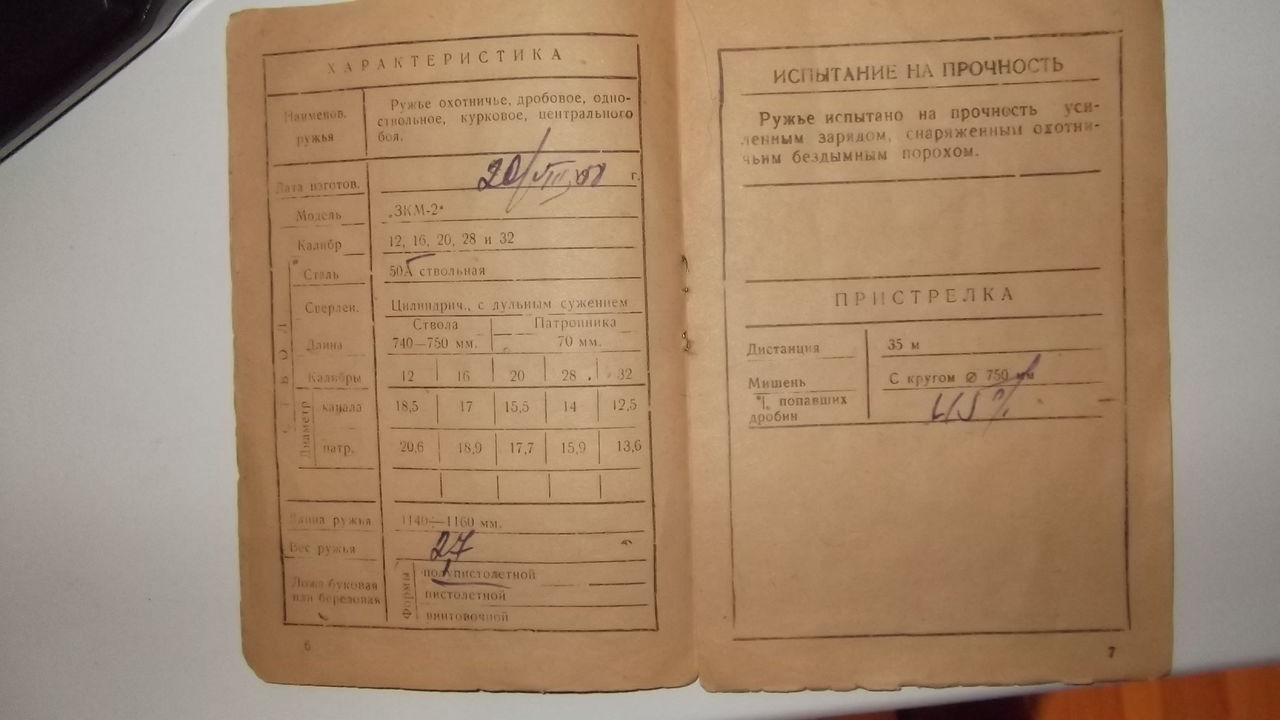 ХАРАКТЕРИСТИКА
Наименов. ружья
Ружье охотничье, дробовое, одно-
ствольное, курковое, центрального
боя.
Дата изготов. 20/VIII г.
Модель „ЗКМ-2“
Калибр 12, 16, 20, 28 и 32
СТВОЛ
Сталь 50А ствольная
Сверлен. Цилиндрич., с дульным сужением
Длина
Ствола Патронника
740—750 мм. 70 мм.
Калибры 12 16 20 28 32
Диаметр
канала 18,5 17 15,5 14 12,5
патр. 20,6 18,9 17,7 15,9 13,6
Длина ружья 1140—1160 мм.
Вес ружья 2,7
Ложа буковая
или березовая
Формы
полупистолетной
пистолетной
винтовочной
6
ИСПЫТАНИЕ НА ПРОЧНОСТЬ
Ружье испытано на прочность уси-
ленным зарядом, снаряженным охотни-
чьим бездымным порохом.
ПРИСТРЕЛКА
Дистанция 35 м
Мишень С кругом ⌀ 750 мм
% попавших
дробин
7